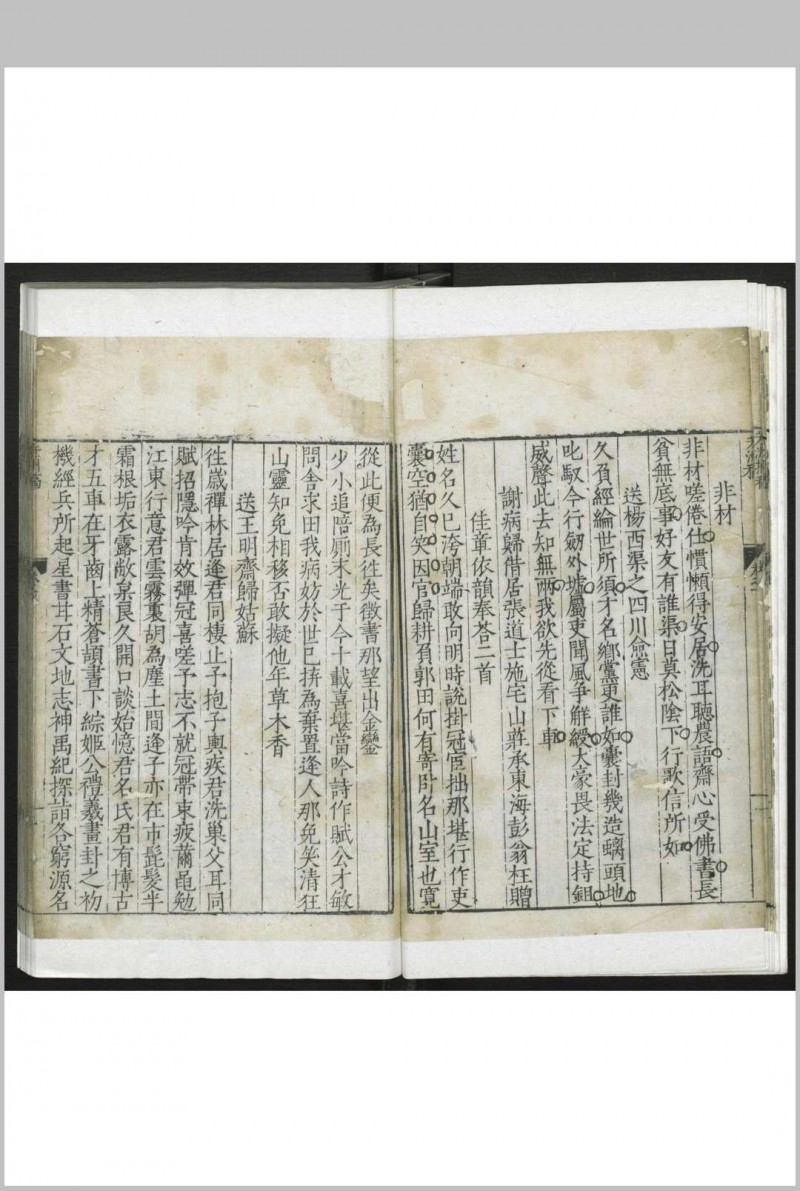 非材
非材嗟倦仕慣懶得安居洗耳聽農語齋心受佛書長
貧無底事好友有誰渠日莫松陰下行歌信所如
送楊西渠之四川僉憲
久負經綸世所須才名鄉黨更誰如囊封幾造螭頭地
叱馭今行劒外墟屬吏聞風爭解綬大豪畏法定持鉏
威聲此去知無兩我欲先從看下車
謝病歸借居張道士施宅山莊承東海彭翁枉贈
佳章依韻奉荅二首
姓名久已涴朝端敢向明時說掛冠宦拙那堪行作吏
囊空猶自笑因官歸耕負郭田何有寄卧名山室也寬
從此便為長徃矣徵書那望出金鑾
少小追陪廁末光于今十載喜堪當吟詩作賦公才敏
問舍求田我病妨於世已拚為棄置逢人那免笑清狂
山靈知免相移否敢擬他年草木香
送王明齋歸姑蘇
徃歲禪林居逢君同棲止予抱子輿疾君洗巢父耳同
賦招隱吟肯效彈冠喜嗟予志不就冠帶束疲薾黽勉
江東行意君雲霧裏胡為塵土間逢子亦在市髭髮半
霜根垢衣露敝枲良久開口談始憶君名氏君有博古
才五車在牙齒上精倉頡書下綜姬公禮羲畫封之初
機經兵所起星書甘石文地志神禹紀探詣各窮源名